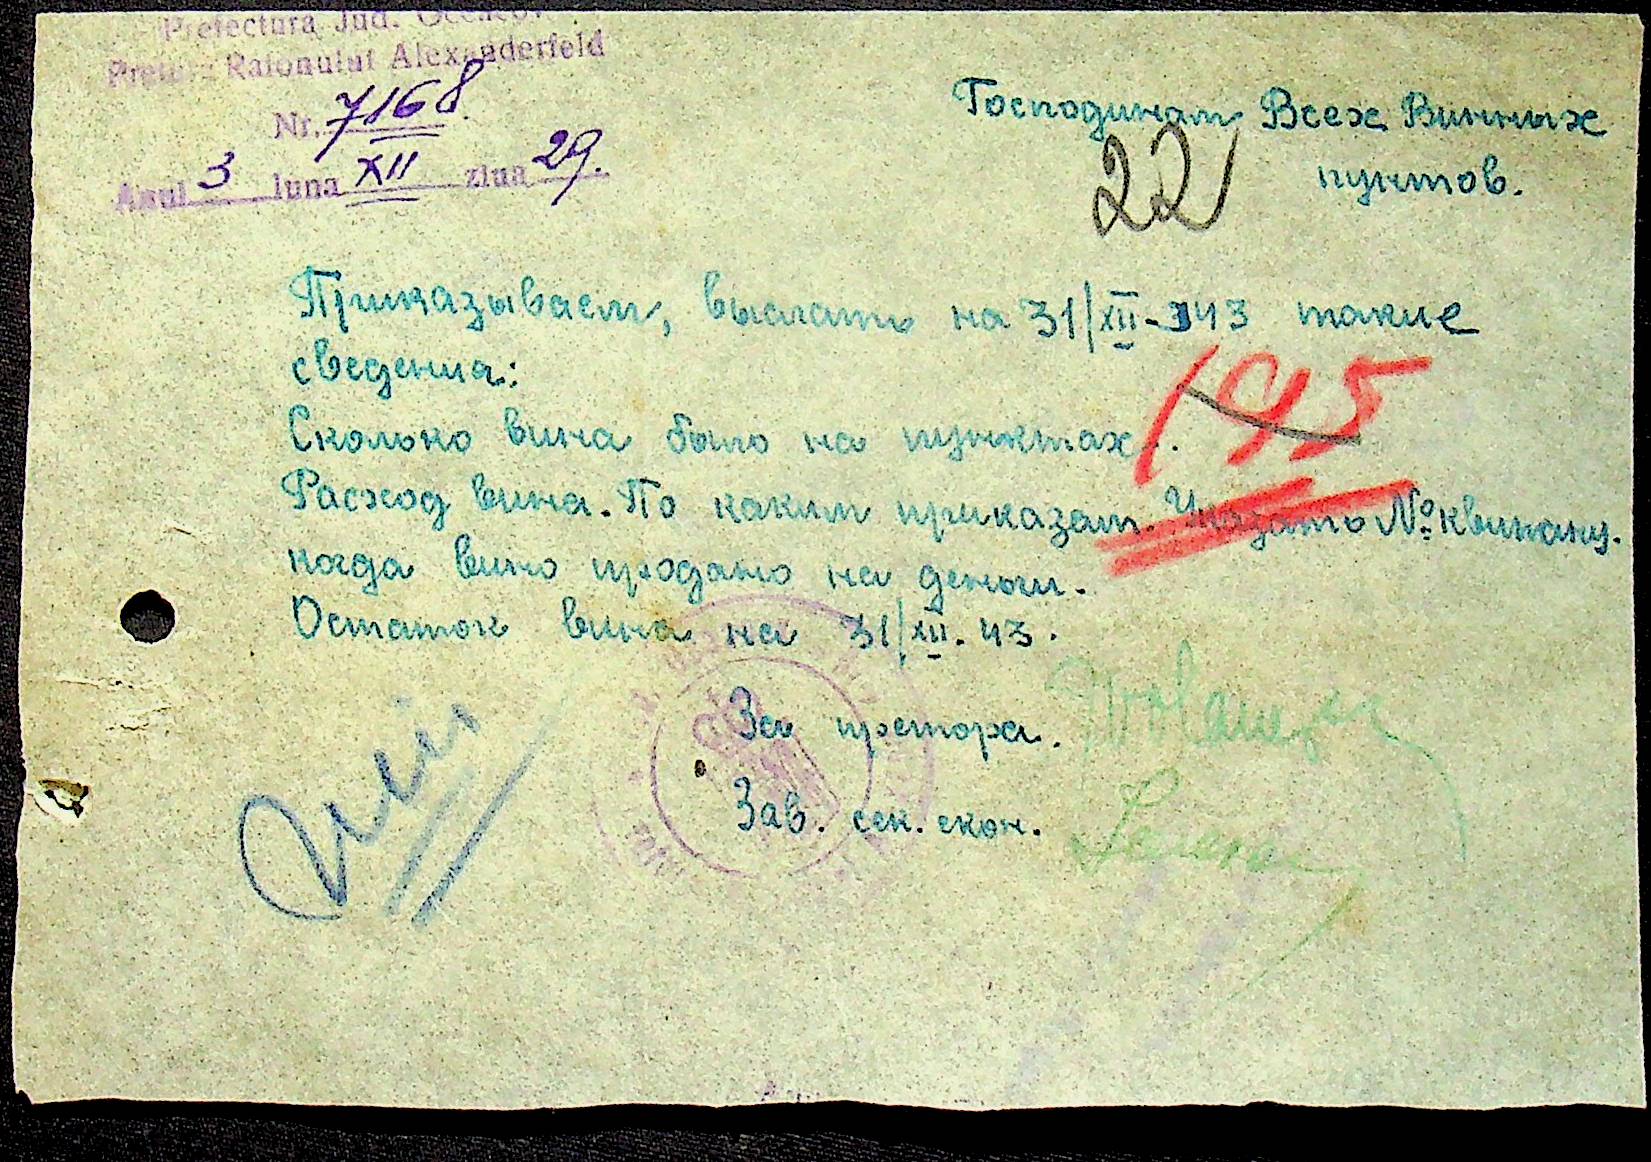 Prefectura Jud.
Pretura Raionului Alexanderfeld
Nr. 7168.
Anul 3 luna XII ziua 29.
Господинам Всех Винных
22
пунтов.
Приказываем, выслать на 31/XII-943 такие
сведения:
195
Сколько вина было на пунктах.
Расход вина. По каким приказам. Указать № квитанц.
когда вино продано на деньги.
Остаток вина на 31/XII. 43.
За претора.
Зав. сек. екон.